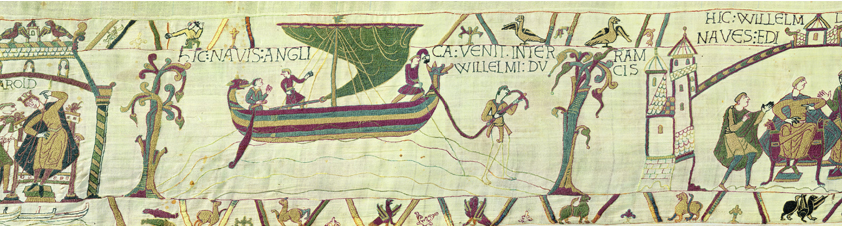 AROLD
HIC: NAVIS: ANGLI
CA: VENIT. INTER
RAM
WILLELMI: DU
CIS
HIC: WILLELM
NAVES: EDI